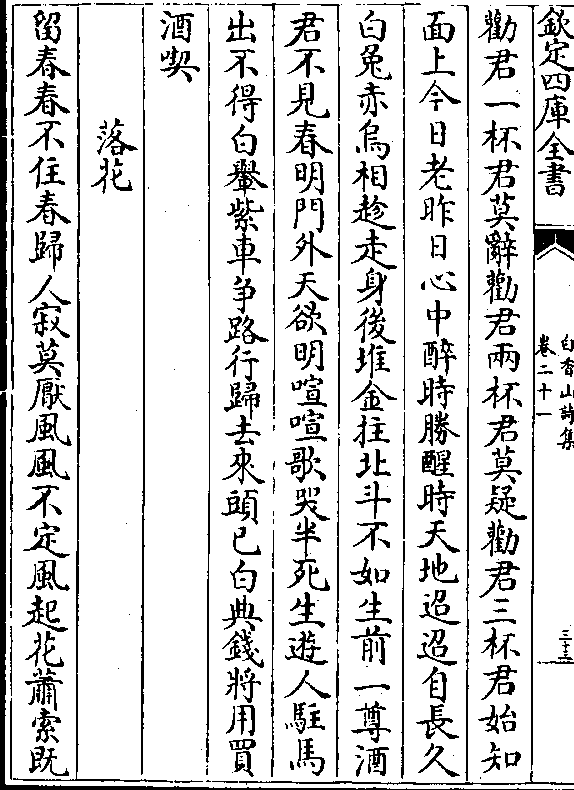 欽定四庫全書
白香山詩集
卷二十一
三十三
勸君一杯君莫辭勸君兩杯君莫疑勸君三杯君始知
面上今日老昨日心中醉時勝醒時天地迢迢自長久
白兔赤烏相趁走身後堆金拄北斗不如生前一尊酒
君不見春明門外天欲明喧喧歌哭半死生遊人駐馬
出不得白轝紫車争路行歸去來頭已白典錢將用買
酒喫
落花
留春春不住春歸人寂莫厭風風不定風起花蕭索既